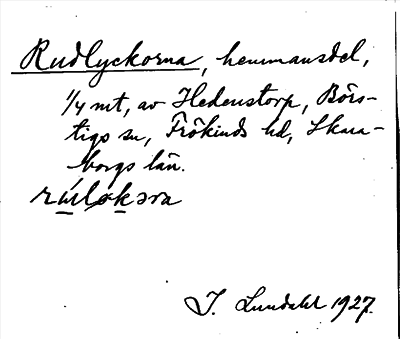 Rudlyckorna, hemmansdel,
1/4 mt, av Hedenstorp, Börs-
tigs sn, Frökinds hd, Skara-
borgs län.
I. Lundahl 1927.